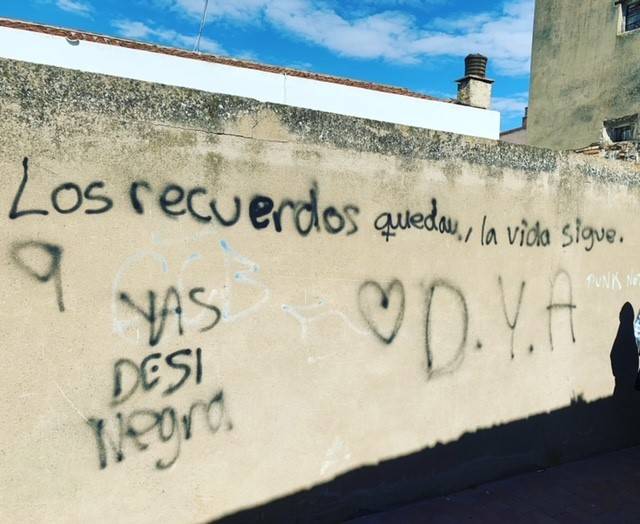 Los recuerdos quedan, la vida sigue.
9
YAS
DESI
Negra
♡ D.Y.A
PUNK NOT